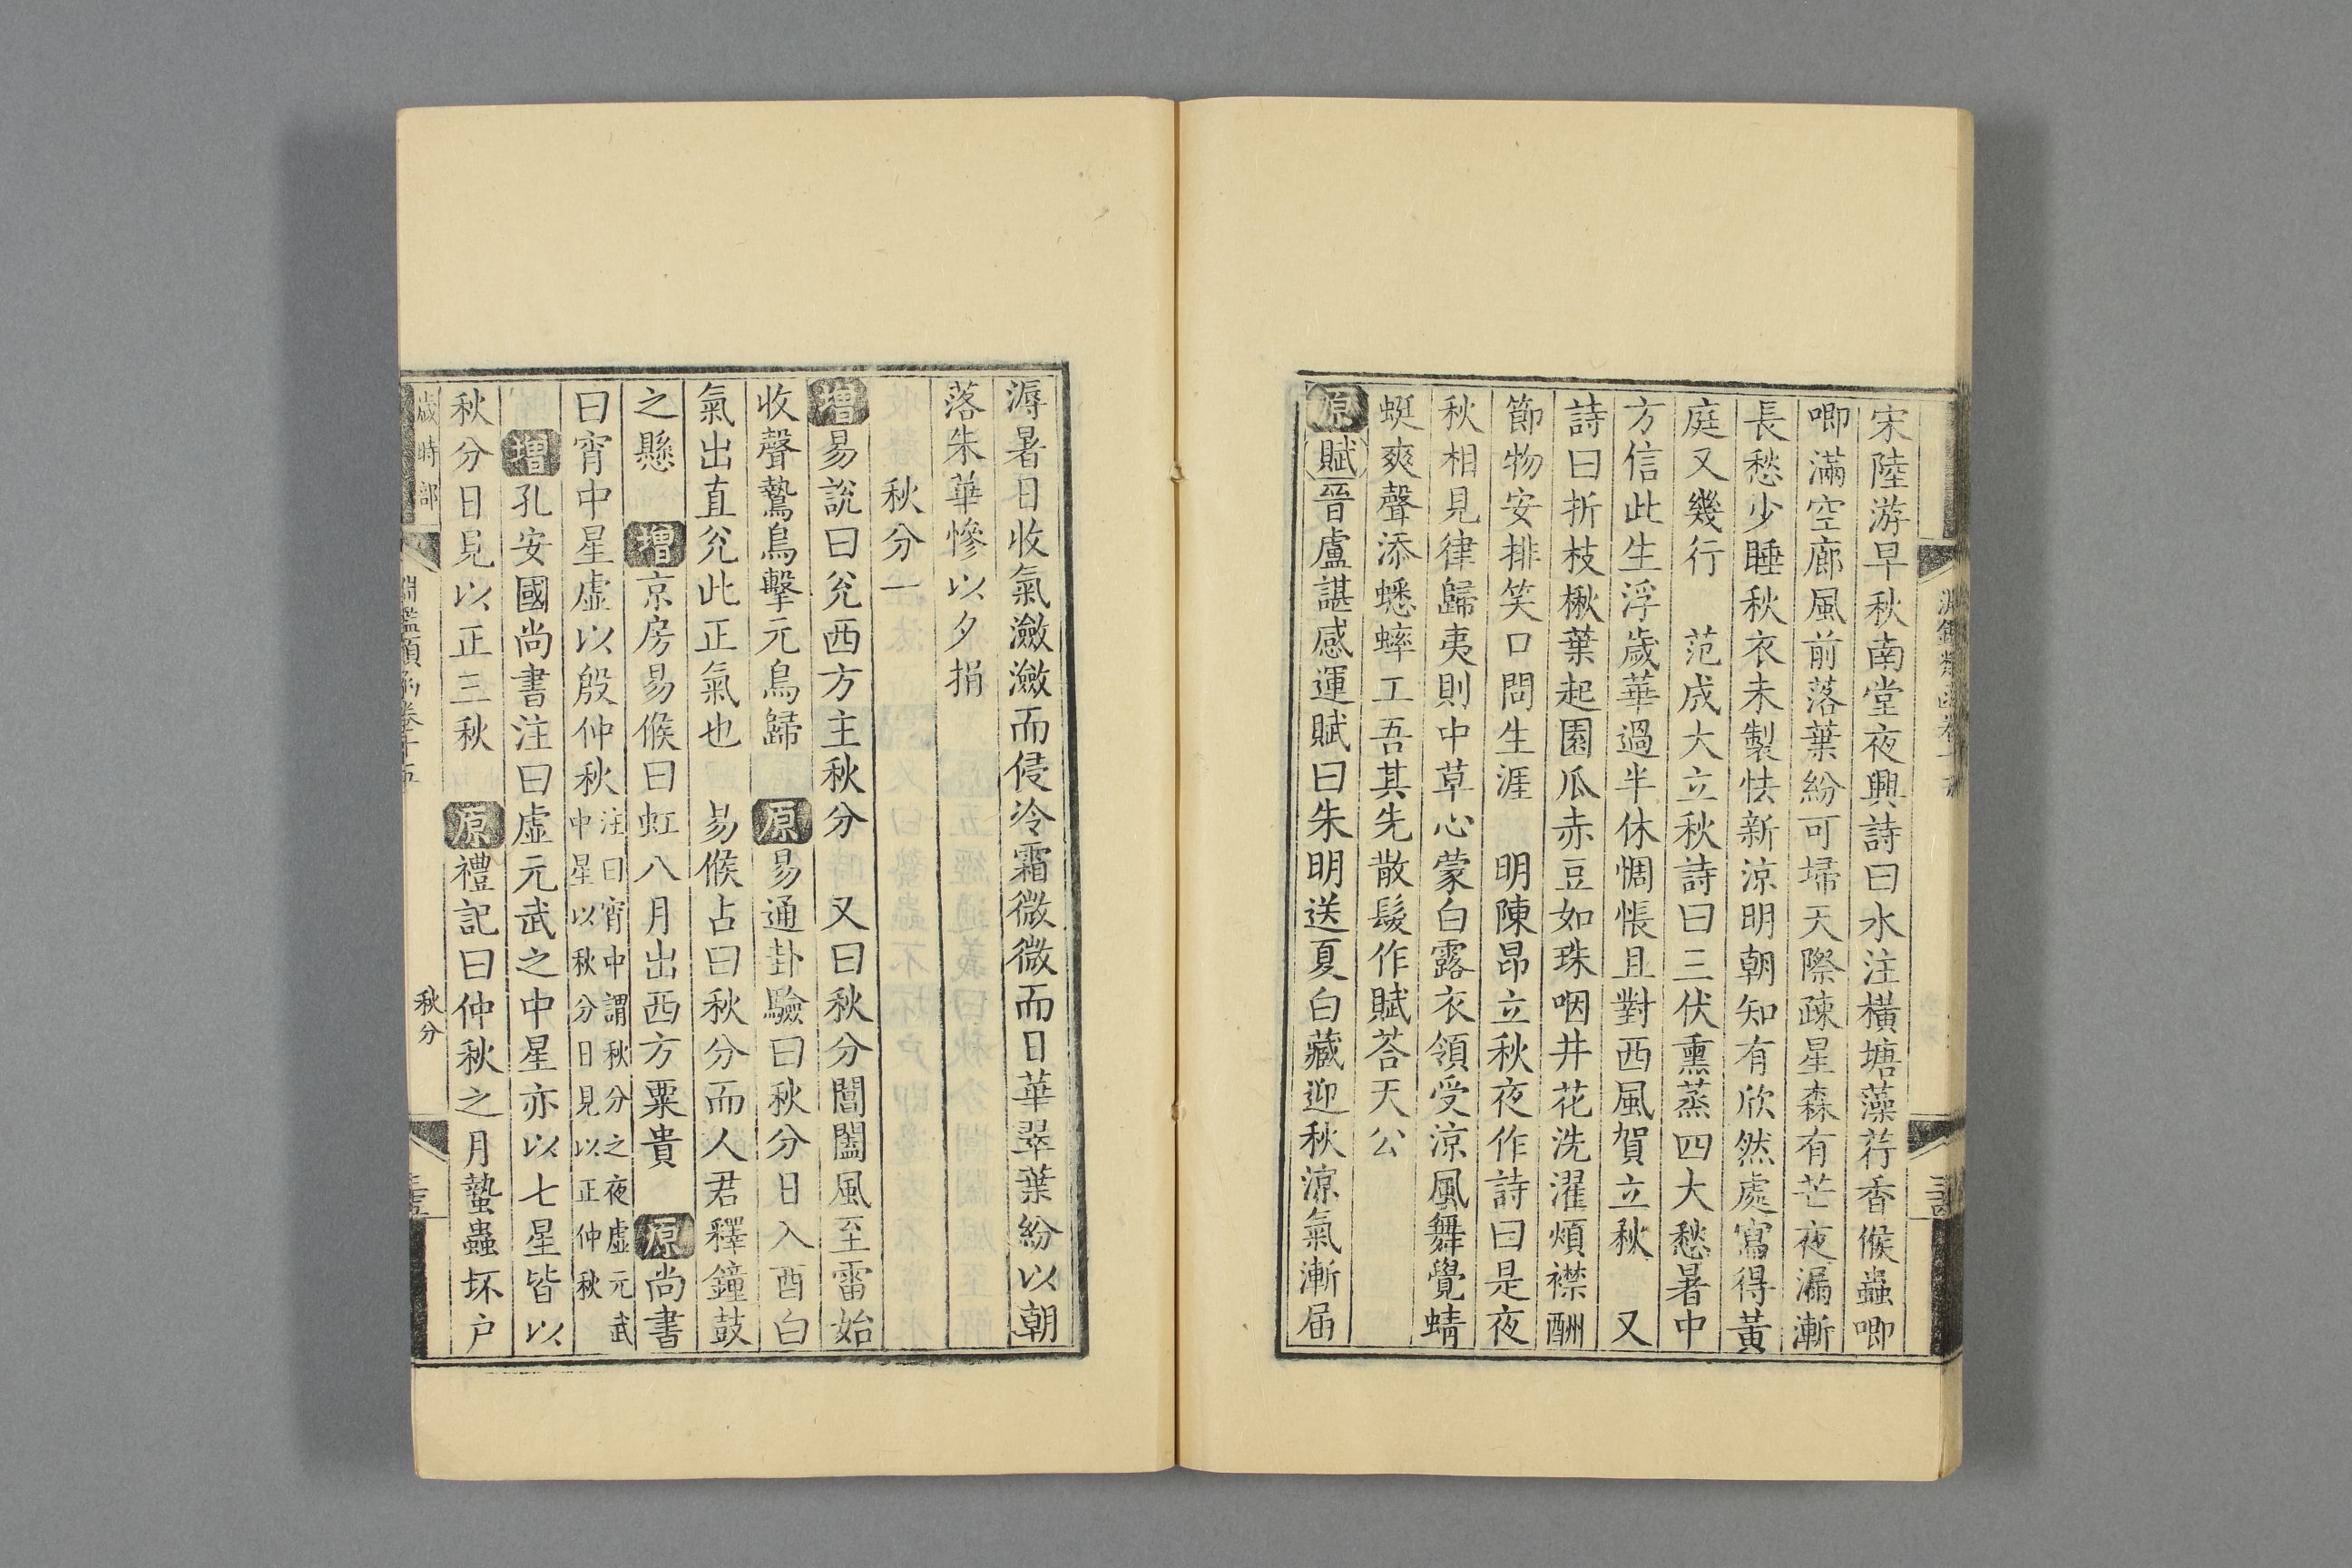 宋陸游早秋南堂夜興詩曰水注橫塘藻荇香候蟲唧
唧滿空廊風前落葉紛可埽天際疎星森有芒夜漏漸
長愁少睡秋衣未製怯新涼明朝知有欣然處寫得黃
庭又幾行　范成大立秋詩曰三伏熏蒸四大愁暑中
方信此生浮歲華過半休惆悵且對西風賀立秋　又
詩曰折枝楸葉起園瓜赤豆如珠咽井花洗濯煩襟酬
節物安排笑口問生涯　明陳昂立秋夜作詩曰是夜
秋相見律歸夷則中草心蒙白露衣領受涼風舞覺蜻
蜓爽聲添蟋蟀工吾其先散髮作賦荅天公
原賦晉盧諶感運賦曰朱明送夏白藏迎秋涼氣漸届
溽暑日收氣瀲瀲而侵冷霜微微而日華翠葉紛以朝
落朱華慘以夕捐
秋分一
增易說曰兌西方主秋分　又曰秋分閶闔風至雷始
收聲鷙鳥擊元鳥歸　原易通卦驗曰秋分日入酉白
氣出直兌此正氣也　易候占曰秋分而人君釋鐘鼓
之懸　增京房易候曰虹八月出西方粟貴　原尚書
曰宵中星虛以殷仲秋注曰宵中謂秋分之夜虛元武中星以秋分日見以正仲秋
增孔安國尚書注曰虛元武之中星亦以七星皆以
秋分日見以正三秋　原禮記曰仲秋之月蟄蟲坏户
歲時部
淵鑑類函卷十五
秋分